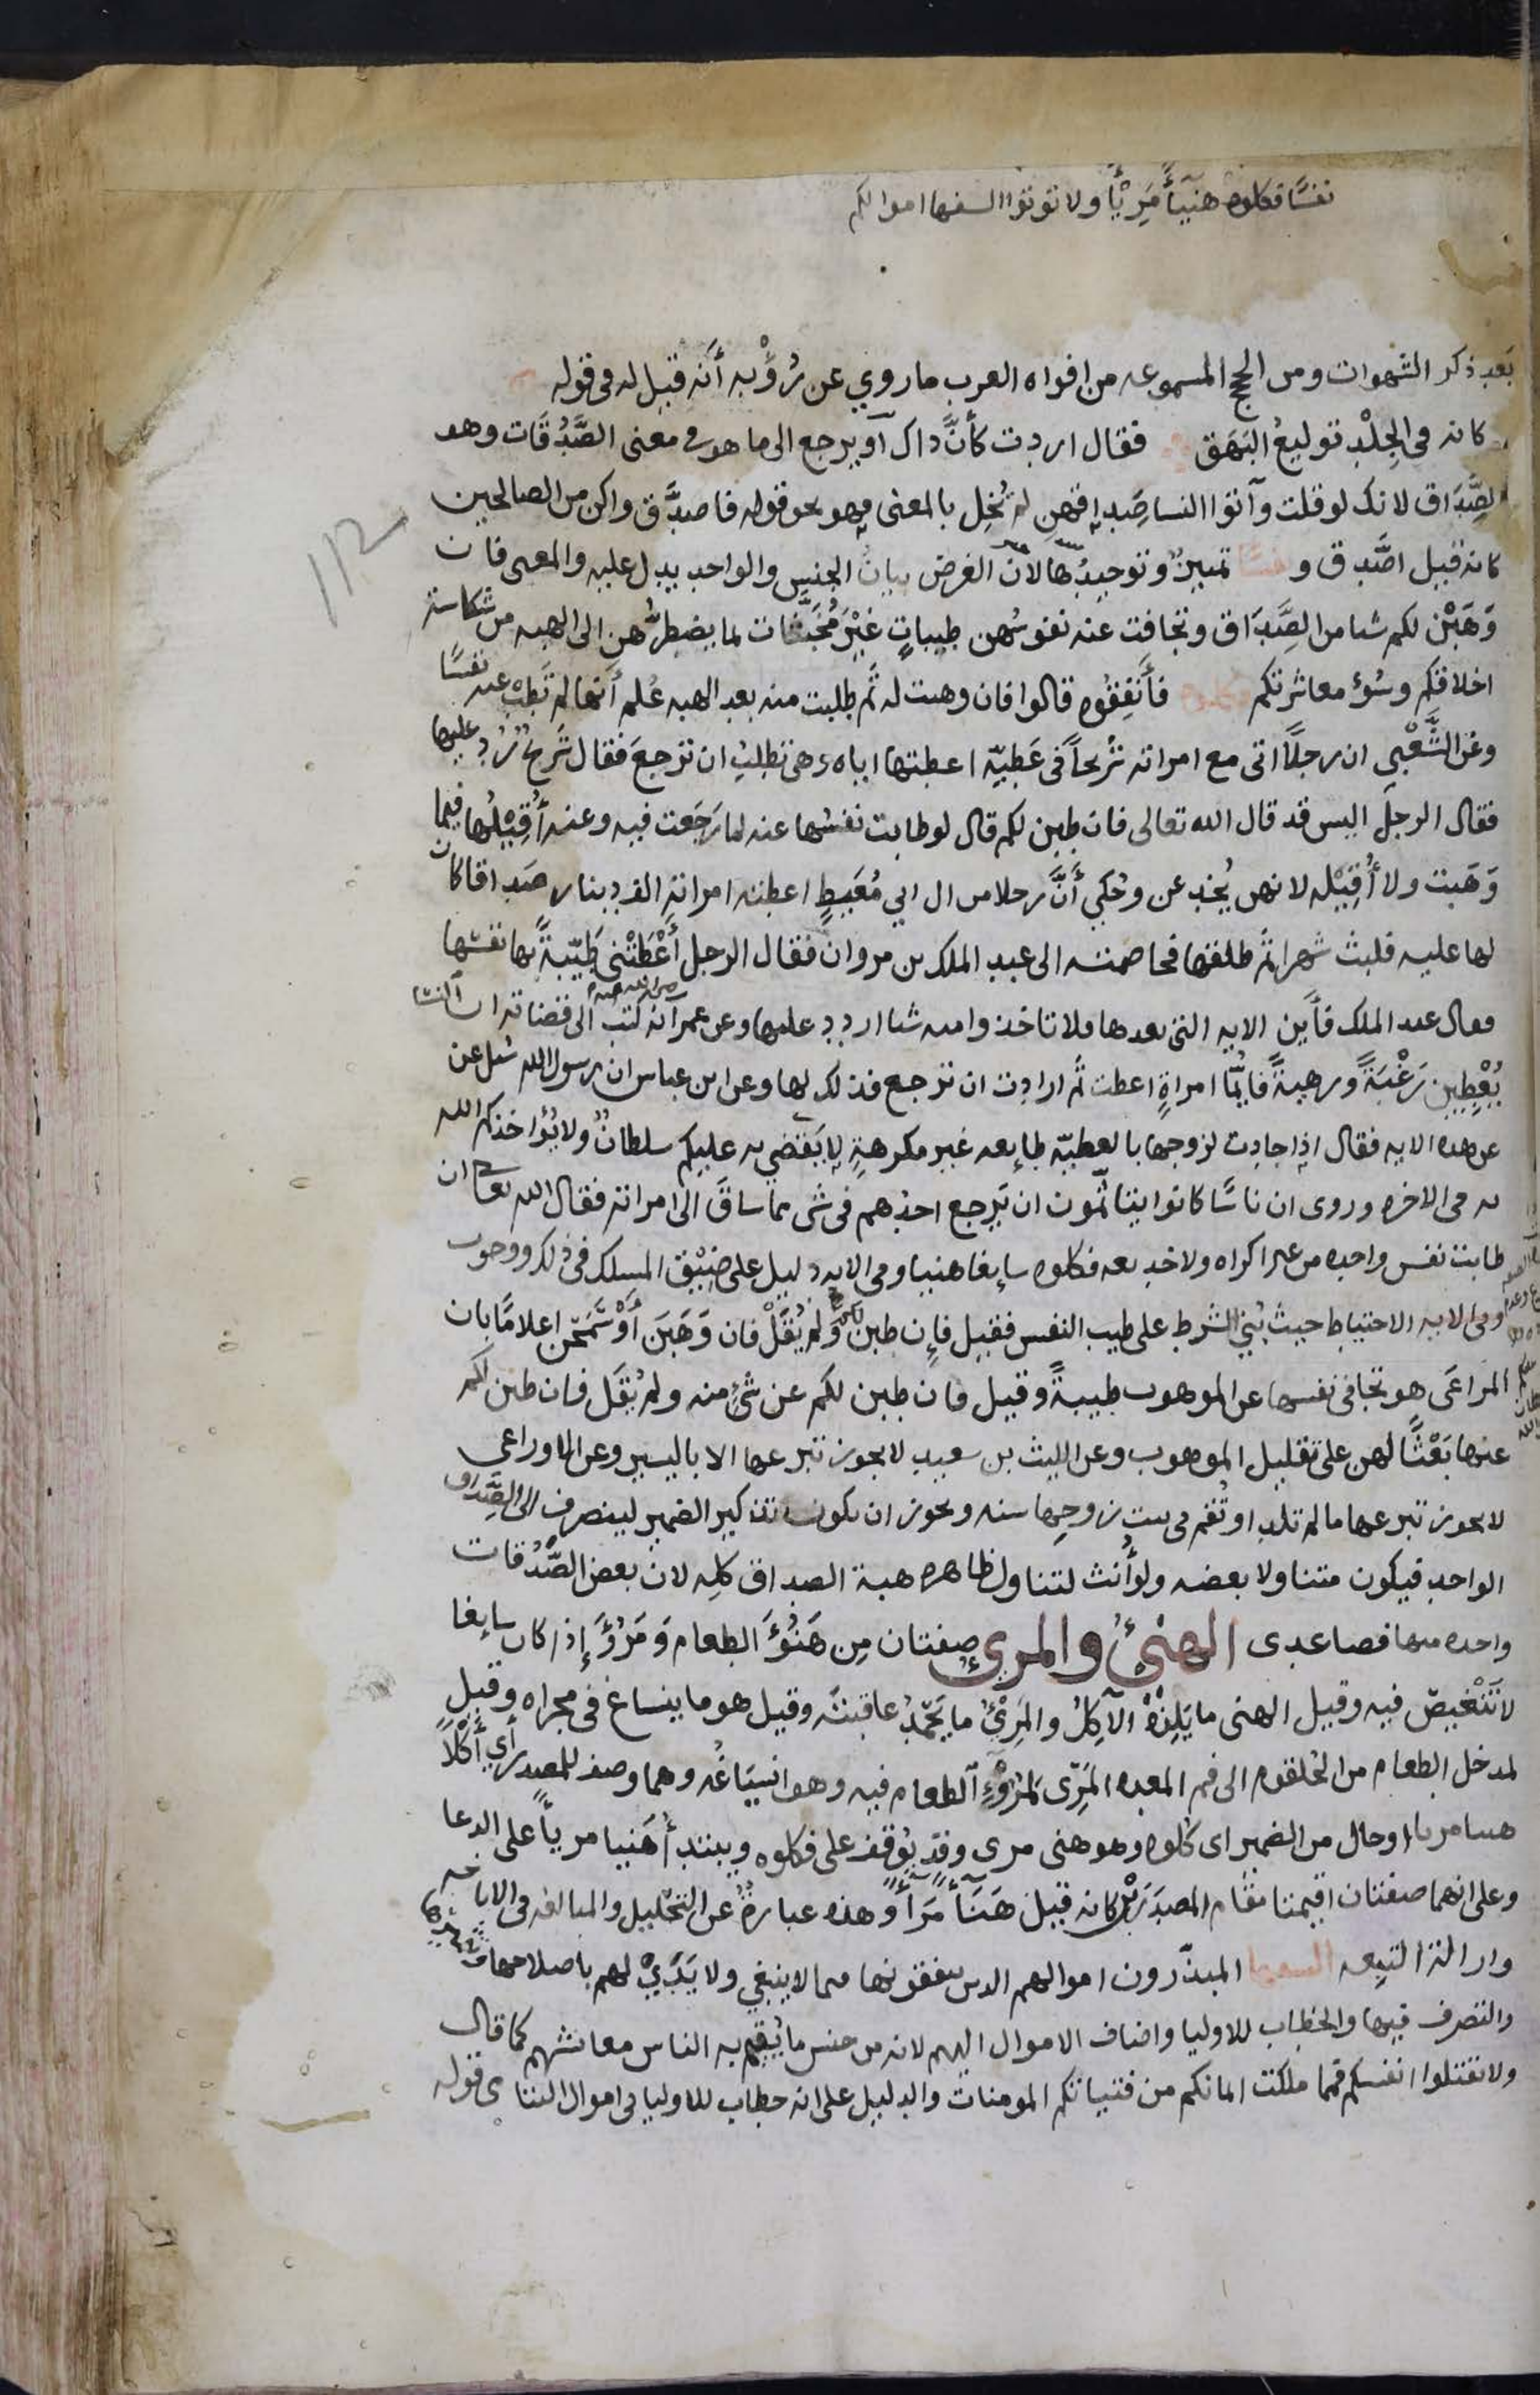 نفسًا فكلوه هنيـًٔا مريـًٔا ولا توتوا السفها اموالكم
بَعد ذكر الشهوات ومن الحجج المسموعه من افواه العرب ما روي عن رُؤْبه أنّه قيل له فى قوله
كانه فى الجِلْدِ توليعُ البَهَق فقال اردت كأنَّ داك او يرجع الى ما هو فى معنى الصَّدُقَات وهو
لصَّدَاق لانك لو قلت وآتوا النسا صَداقهن لم تُخِل بالمعنى فهو نحو قوله فاصدَّق واكن من الصالحين
كانه قيل اصَّدق و نفسًا تمييزٌ وتوحيدُها لان الغرض بيانُ الجنس والواحد يدل عليه والمعنى فان
وَهَبْن لكم شيا من الصَّدَاق وتجافت عنه نفوسُهن طيباتٍ غَيْرَ مُخَبَّثات لما يضطرُّهن الى الهبه من شكاسة
اخلاقكم وسُوْء معاشرتكم فكلوه فأَنفِقُوه قالوا فان وهبت له ثم طلبت منه بعد الهبه عُلم أنّها لم تَطِبْ عنه نفسًا
وعن الشَّعْبي ان رجلًا اتى مع امراته شُرَيحًا فى عَطيّة اعطتها اياه وهى تطلبُ ان ترجعَ فقال شُرَيح رُدّ عليها
فقال الرجل اليس قد قال الله تعالى فان طبن لكم قال لو طابت نفسُها عنه لما رَجَعت فيه وعنه أُقِيْلُها فيما
وَهَبت ولا أُقِيْله لانهن يُخدعن وحُكي أنَّ رجلا من ال ابي مُعَيطٍ اعطته امراته الف دينار صَداقا كان
لها عليه فلبث شهرا ثم طلقها فخاصمته الى عبد الملك بن مروان فقال الرجل أَعْطَتْني طَيّبةً بها نفسُها
فقال عبد الملك فأين الايه التى بعدها فلا تاخذوا منه شيا اردد عليها وعن عمر رضى الله عنه انه كتب الى قضاته ان النسا
يُعْطِين رَغْبَةً ورهبةً فايُّما امراةٍ اعطت ثم ارادت ان ترجع فذلك لها وعن ابن عباس ان رسول الله سُئل عن
عن هذه الايه فقال اذا جادت لزوجها بالعطيّه طايعه غير مكرهةٍ لا يَقضي به عليكم سلطانٌ ولا يُؤاخذكم الله
به فى الاخره وروى ان ناسًا كانوا يتاثّمون ان يَرجع احدُهم فى شى مما ساقَ الى امراته فقال الله تعالى ان
طابت نفس واحده من غير اكراه ولا خديعه فكلوه سايغا هنيا وفى الايه دليل على ضِيْق المسلك فى ذلك ووجوب
وفى الايه الاحتياط حيث بُنِيَ الشرط على طيب النفس فقيل فإن طبن لكم ولم يُقَلْ فان وَهَبَن أَوْ سَمَحْن اعلامًا بان
المراعَى هو تجافى نفسها عن الموهوب طيبةً وقيل فان طبن لكم عن شىٔ منه ولم يُقَل فان طبن لكم
عنها بَعْثًا لهن على تقليل الموهوب وعن الليث بن سعيد لا يجوز تبرعها الا باليسير وعن الاوزاعى
لا يجوز تبرعها ما لم تلد او تُقم فى بيت زوجِها سنه ويجوز ان يكون تذكير الضمير لينصرف الى الصَّداق
الواحد فيكون متناولا بعضه ولو أُنث لتناول ظاهره هبة الصداق كلِه لان بعض الصَّدُقات
واحده منها فصاعدى الهنئُ والمرئُ صِفتان مِن هَنُؤَ الطعام وَمَرُؤَ إذا كان سايغا
لا تَنْغيصَ فيه وقيل الهنى ما يَلذُهُ الآكِلُ والمَرِئُ ما يُحْمَدُ عاقبتُه وقيل هو ما ينساغ فى مجراه وقيل
لمدخل الطعام من الحُلقوم الى فم المعده المَرِّى لمُرُوْءِ الطعام فيه وهو انسِيَاغُه وهما وصف للمصدر أي أَكْلًا
هنيا مريا او حال من الضمير اى كُلوه وهو هنى مرى وقد يُوْقف على فكلوه ويبتدأ هَنيا مريأً على الدعا
وعلى انهما صفتان اقيمتا مقام المصدَرَيْن كانه قيل هَنَأً مَرَأً وهذه عبارةٌ عن التحليل والمبالغه فى الاباحه
وازالة التبِعه السفها المبذّرون اموالهم الدين ينفقونها فيما لا ينبغي ولا يَدَيْ لهم باصلاحها
والتصرف فيها والخطاب للاوليا واضاف الاموال اليهم لانه من جنس ما يُقيم به الناس معايشهم كما قال
ولا تقتلوا انفسكم فمما ملكت ايمانكم من فتياتكم المومنات والدليل على انه خطاب للاوليا فى اموال اليتامى قوله
112